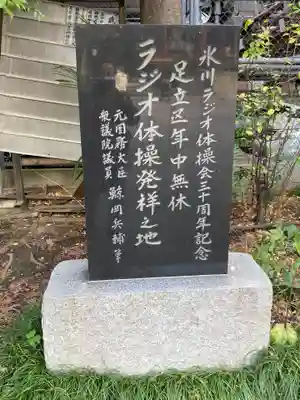 氷川ラジオ体操会三十周年記念
足立区年中無休
ラジオ体操発祥之地
元国務大臣
衆議院議員
鯨岡兵輔 筆